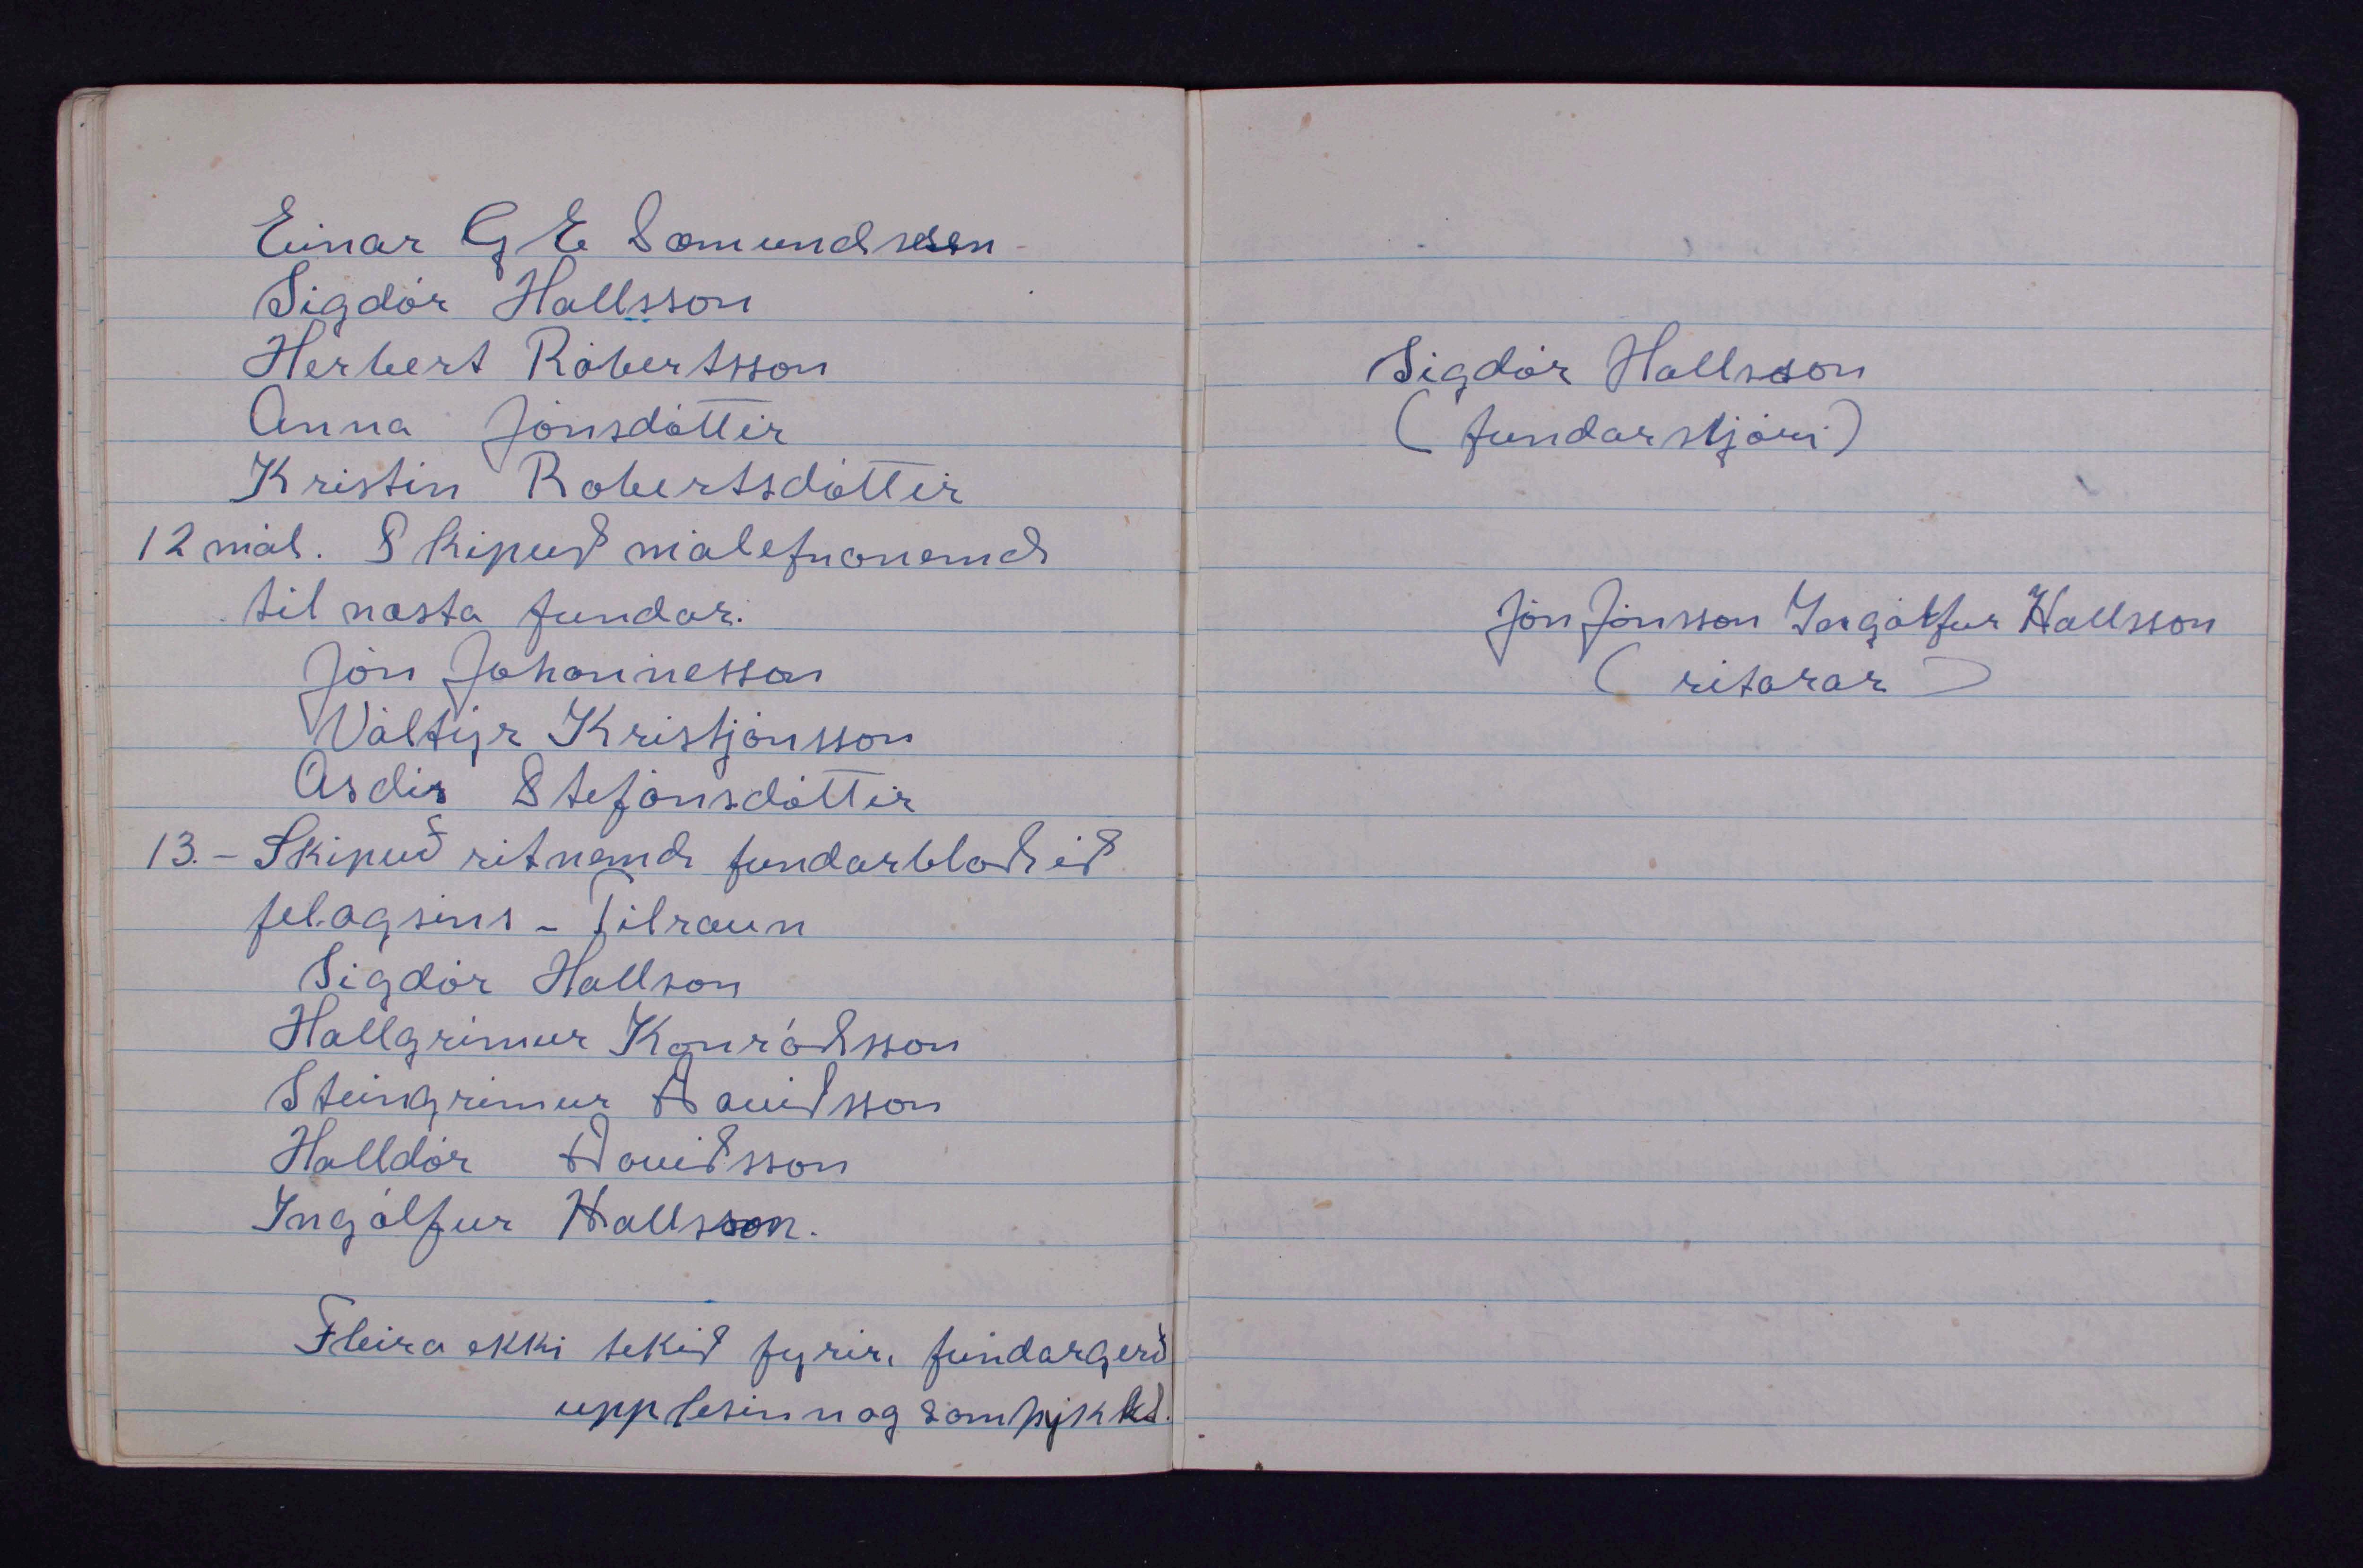 Einar G E Sæmundsen
Sigdór Hallsson
Herbert Róbertsson
Anna Jónsdóttir
Kristín Robertsdóttir
12 mál. Skipuð málefnanemd
til næsta fundar.
Jón Jóhannesson
Valtýr Kristjánsson
Asdís Stefánsdóttir
13. – Skipuð ritnemd fundarblaðið
felagsins – Tilraun
Sigdór Hallson
Hallgrímur Konráðsson
Steingrímur Davíðsson
Halldór Davíðsson
Ingólfur Hallsson.
Fleira ekki tekið fyrir, fundargerð
upplesinn og samþykkt.
Sigdór Hallsson
(fundarstjóri)
Jón Jónsson Ingólfur Hallsson
(ritarar)